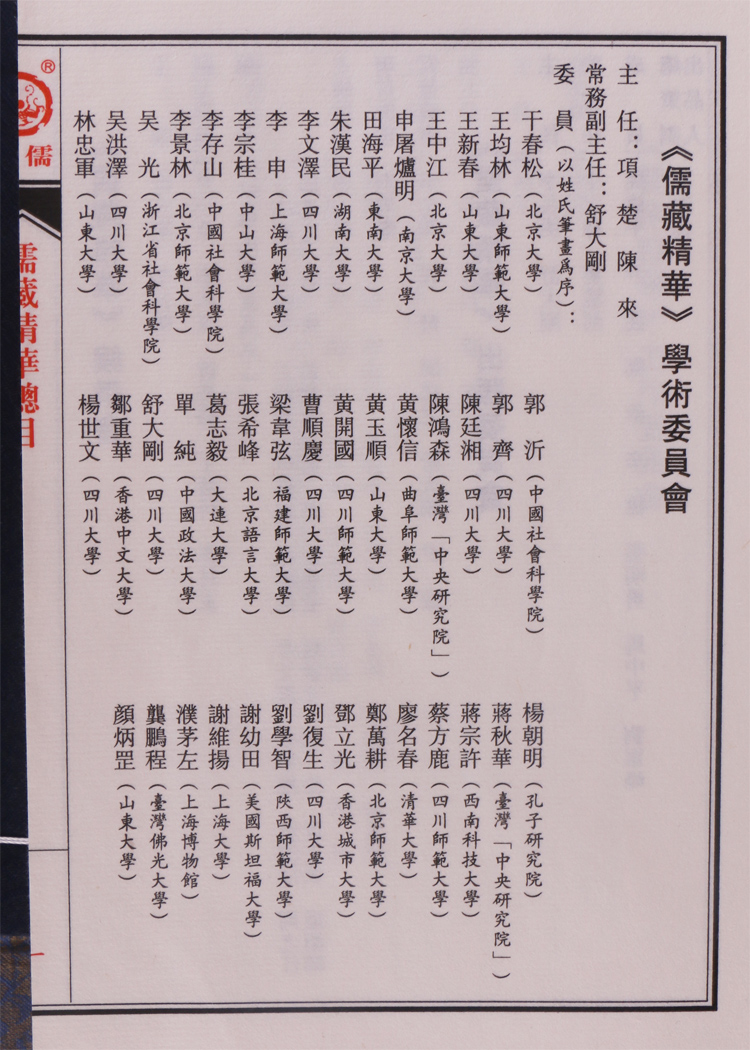 《儒藏精華》學術委員會
主任：項楚 陳來
常務副主任：舒大剛
委員（以姓氏筆畫爲序）：
于春松（北京大學） 郭沂（中國社會科學院） 楊朝明（孔子研究院）
王均林（山東師範大學） 郭齊（四川大學） 蔣秋華（臺灣「中央研究院」）
王新春（山東大學） 陳廷湘（四川大學） 蔣宗許（西南科技大學）
王中江（北京大學） 陳鴻森（臺灣「中央研究院」） 蔡方鹿（四川師範大學）
申屠爐明（南京大學） 黄懷信（曲阜師範大學） 廖名春（清華大學）
田海平（東南大學） 黄玉順（山東大學） 鄭萬耕（北京師範大學）
朱漢民（湖南大學） 黄開國（四川師範大學） 鄧立光（香港城市大學）
李文澤（四川大學） 曹順慶（四川大學） 劉復生（四川大學）
李申（上海師範大學） 梁韋弦（福建師範大學） 劉學智（陜西師範大學）
李宗桂（中山大學） 張希峰（北京語言大學） 謝幼田（美國斯坦福大學）
李存山（中國社會科學院） 葛志毅（大連大學） 謝維揚（上海大學）
李景林（北京師範大學） 單純（中國政法大學） 濮茅左（上海博物館）
吴光（浙江省社會科學院） 舒大剛（四川大學） 龔鵬程（臺灣佛光大學）
吴洪澤（四川大學） 鄒重華（香港中文大學） 顏炳罡（山東大學）
林忠軍（山東大學） 楊世文（四川大學）
®
儒
儒藏精華總目
一